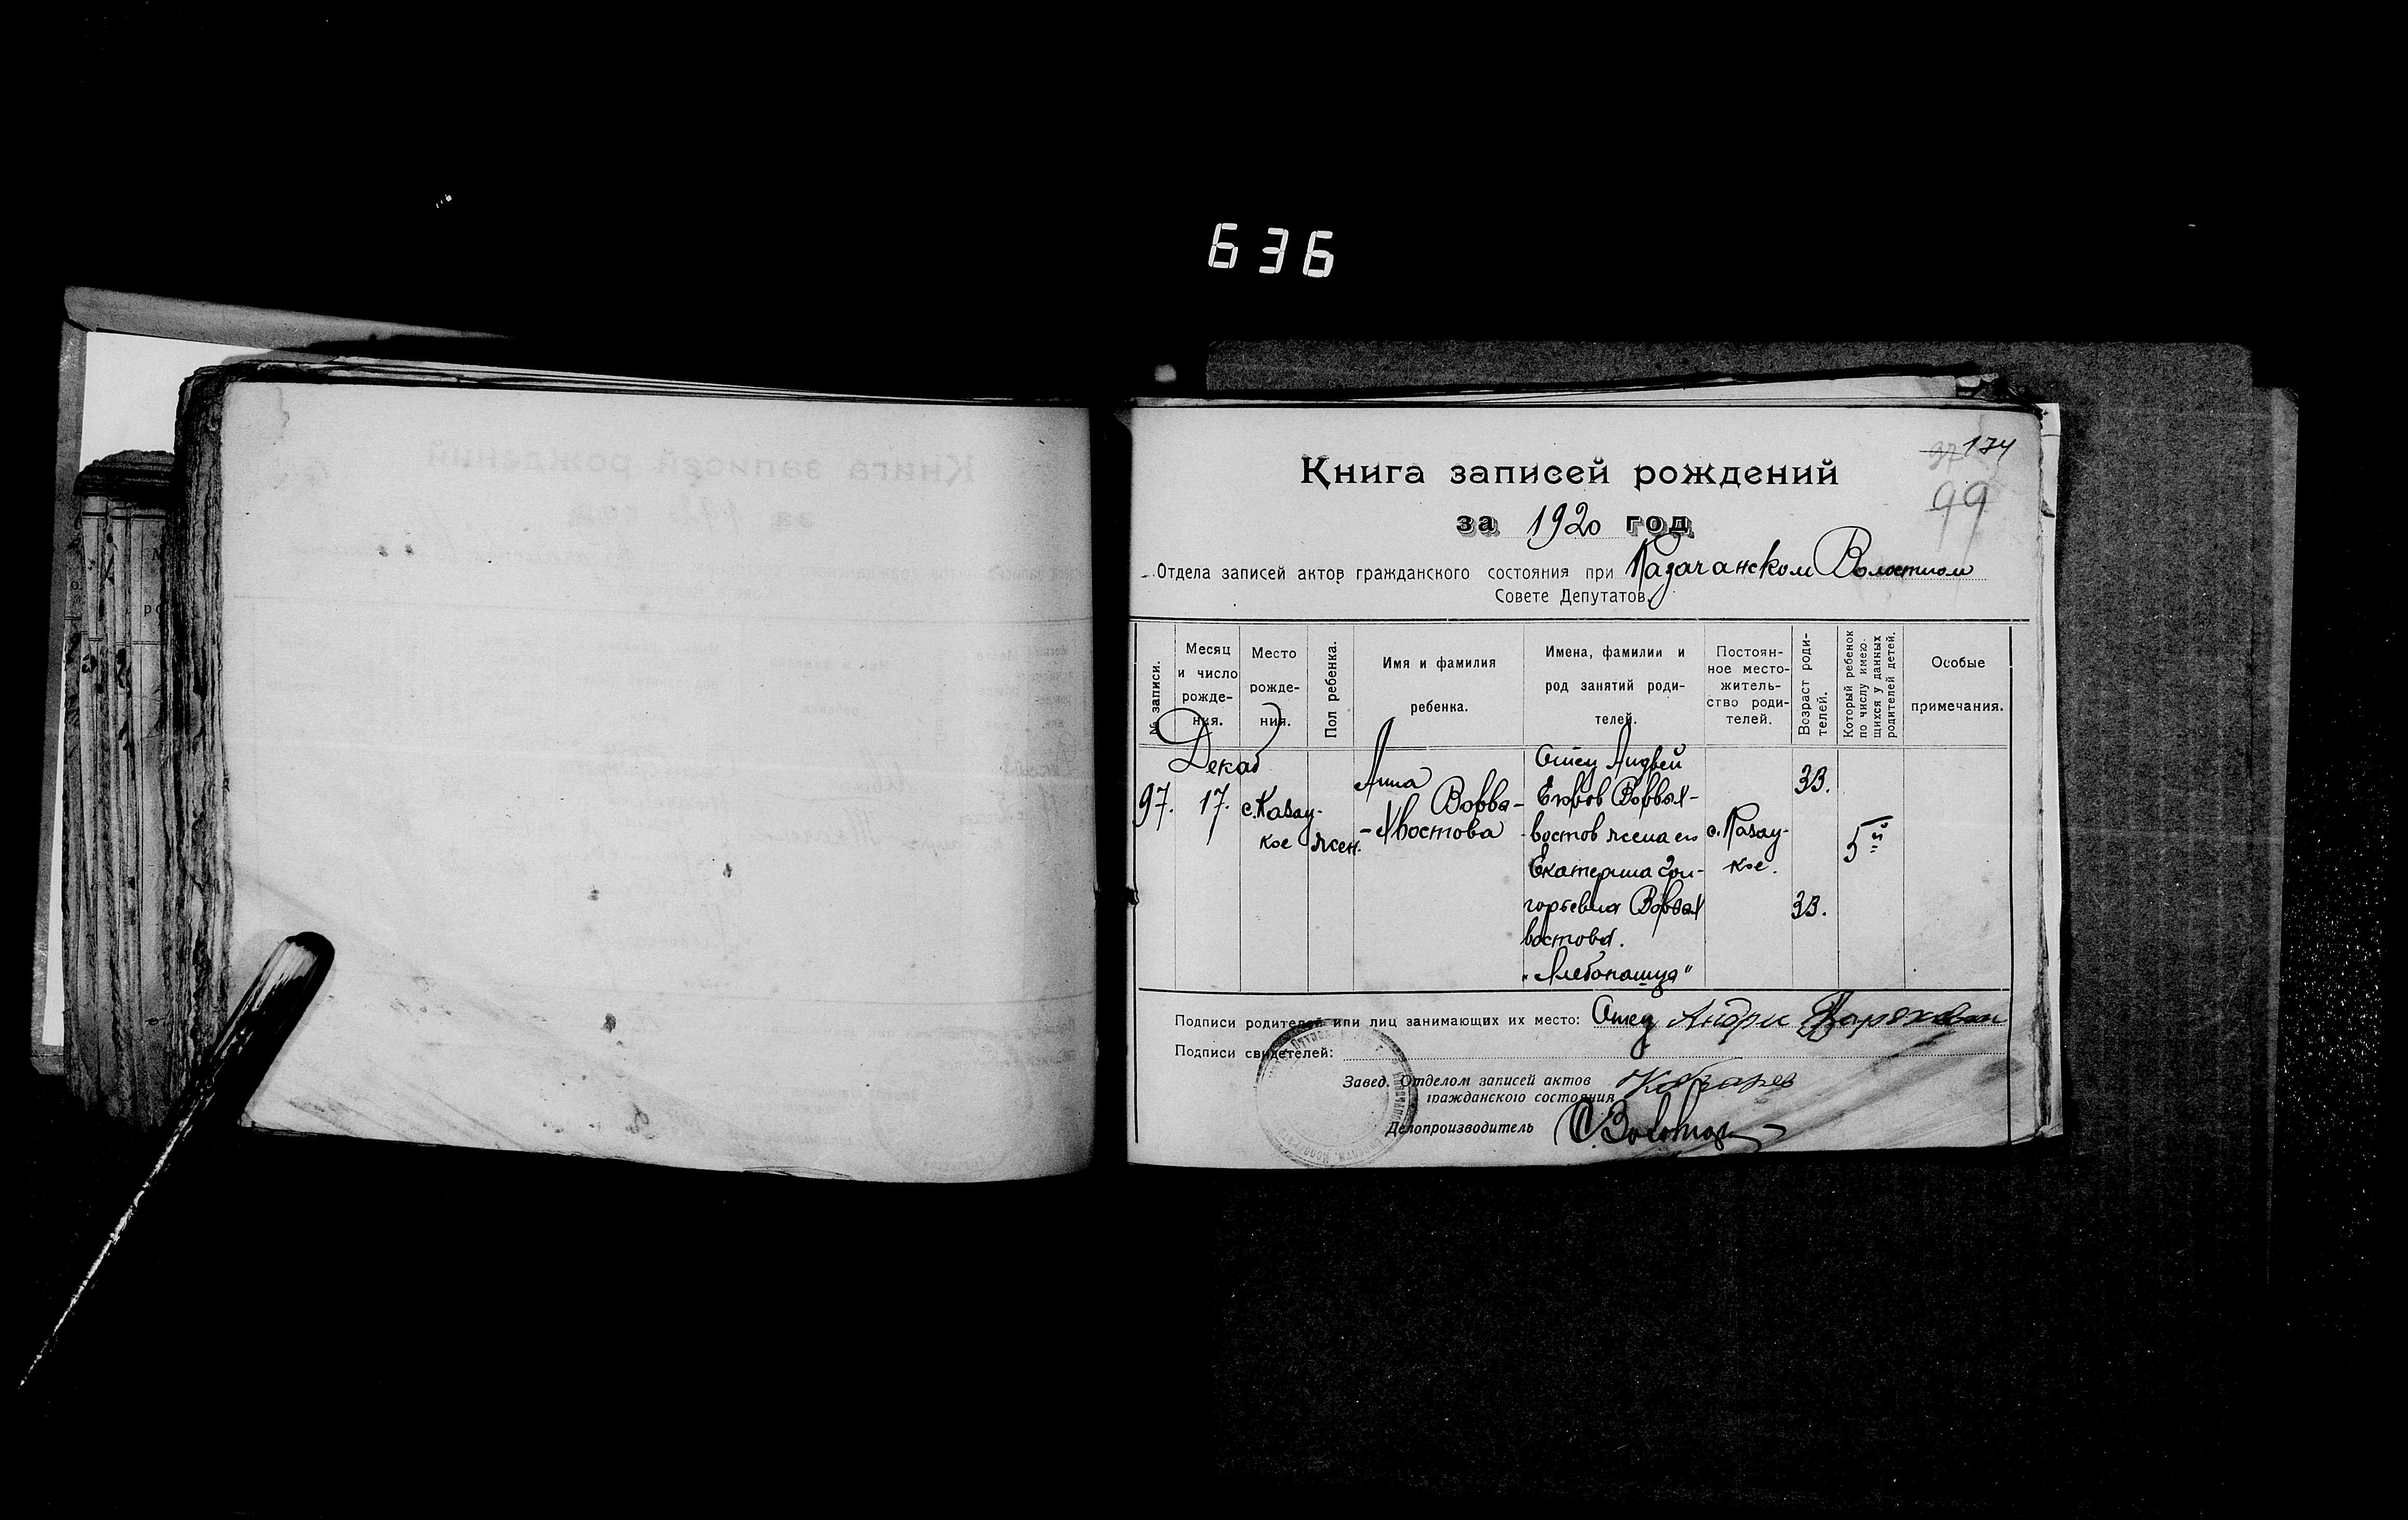 636
37 174
99
Книга записей рождений
за 1920 год
Отдела записей актов гражданского состояния при Казачанском Волостном
Совете Депутатов.
№ записи.
Месяц и число рожде-ния.
Место рожде-ния.
Пол ребенка.
Имя и фамилия ребенка.
Имена, фамилии и род занятий роди-телей.
Постоян-ное место-житель-ство роди-телей.
Возраст роди-телей.
Который ребенок по числу имею-щихся у данных родителей детей.
Особые примечания.
Декаб
97. 17.
с. Казац-
кое
жен.
Анна
Ворва-
-хвостова
Отец Андрей
Егоров Ворвах-
востов жена его
Екатерина Гри-
горьевна Ворвах
востова.
"Хлебопашцы"
с. Казац-
кое.
33.
33.
5й
Подписи родителей или лиц занимающих их место: Отец Андри
Подписи свидетелей:
Завед. Отделом записей актов
гражданского состояния
Делопроизводитель